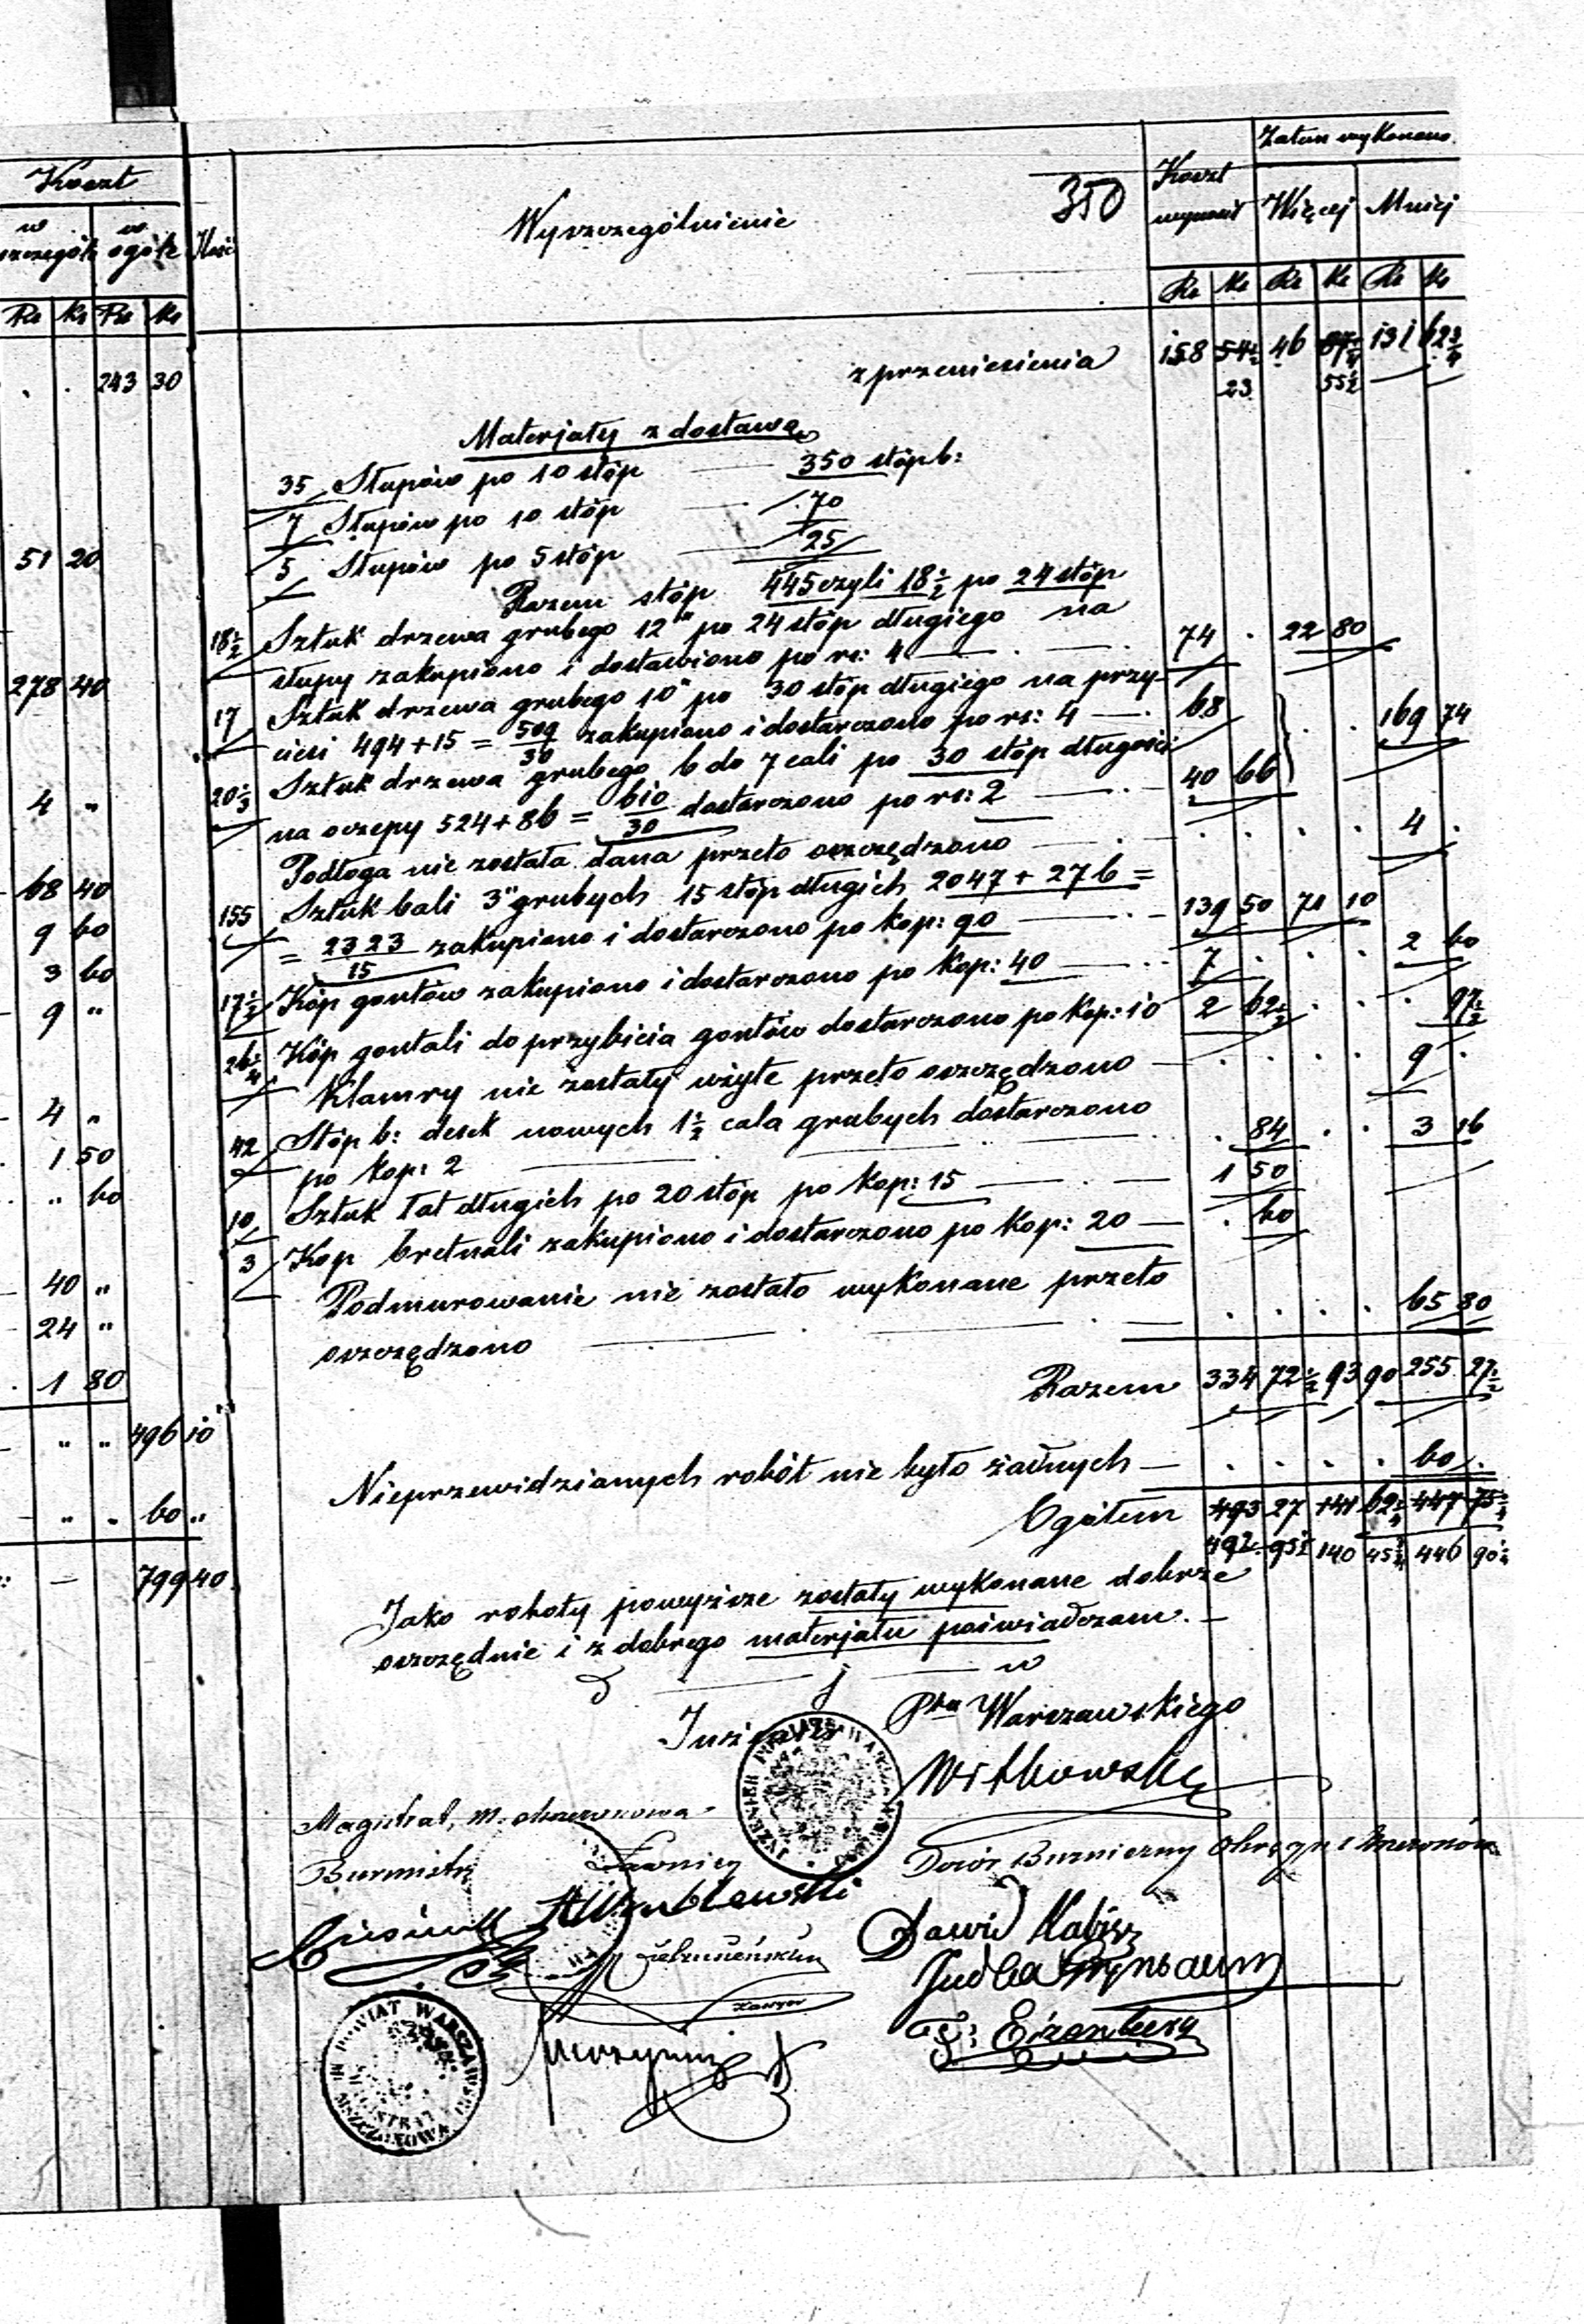 Koszt
w szczególe
w ogóle
Rs Ks Rs Ks
. . 243 30
51 20
278 40
4 "
68 40
9 60
3 60
9 "
4 "
1 50
" 60
40 "
24 "
1 80
" " 496 10
" " 60 "
— 799 40
Ilość
Wyszczególnienie
350
Koszt wynosił
Zatem wykonano
Więcej
Mniej
Rs Ks Rs Ks Rs Ks
z przeniesienia 158 54½ 46 87¼ 131 62¾
23 55½
Materjały z dostawą
35 Słupów po 10 stóp — 350 stóp b:
7 Słupów po 10 stóp — 70
5 Słupów po 5 stóp — 25
Razem stóp 445 czyli 18½ po 24 stóp
18½ Sztuk drzewa grubego 12" po 24 stóp długiego na
słupy zakupiono i dostawiono po rs: 4 — 74 . 22 80
17 Sztuk drzewa grubego 10" po 30 stóp długiego na przy-
ciesi 494 + 15 = 509/30 zakupiono i dostarczono po rs: 4 — 68 . . 169 74
20⅓ Sztuk drzewa grubego 6 do 7 cali po 30 stóp długości
na oczepy 524 + 86 = 610/30 dostarczono po rs: 2 — 40 66
Podłoga nie została dana przeto oszczędzono — . . . . 4 .
155 Sztuk bali 3" grubych 15 stóp długich 2047 + 276 =
= 2323/15 zakupiono i dostarczono po kop: 90 — 139 50 71 10
17½ Kóp gontów zakupiono i dostarczono po kop: 40 — 7 . . . 2 60
26¼ Kóp gontali do przybicia gontów dostarczono po kop: 10 2 62½ . . . 97½
Klamry nie zostały użyte przeto oszczędzono — . . . . 9 .
42 Stóp b: desek nowych 1½ cala grubych dostarczono
po kop: 2 — . 84 . . 3 16
10 Sztuk łat długich po 20 stóp po kop: 15 — 1 50
3 Kop bretnali zakupiono i dostarczono po kop: 20 — . 60
Podmurowanie nie zostało wykonane przeto
oszczędzono — . . . . 65 80
Razem 334 72½ 93 90 255 27½
Nieprzewidzianych robót nie było żadnych — . . . . 60 .
Ogółem 493 27 141 62¼ 447 75¼
492 95½ 140 45¾ 446 90¼
Jako roboty powyższe zostały wykonane dobrze
oszczędnie i z dobrego materjału poświadczam. —
Inżynier Ptu Warszawskiego
Witkowski
Magistrat, m.
Burmistrz Ławnicy Dozór Bużniczny Okręgu
Dawid
Judka Grynbaum
Eizenberg
POWIAT WARSZAWSKI